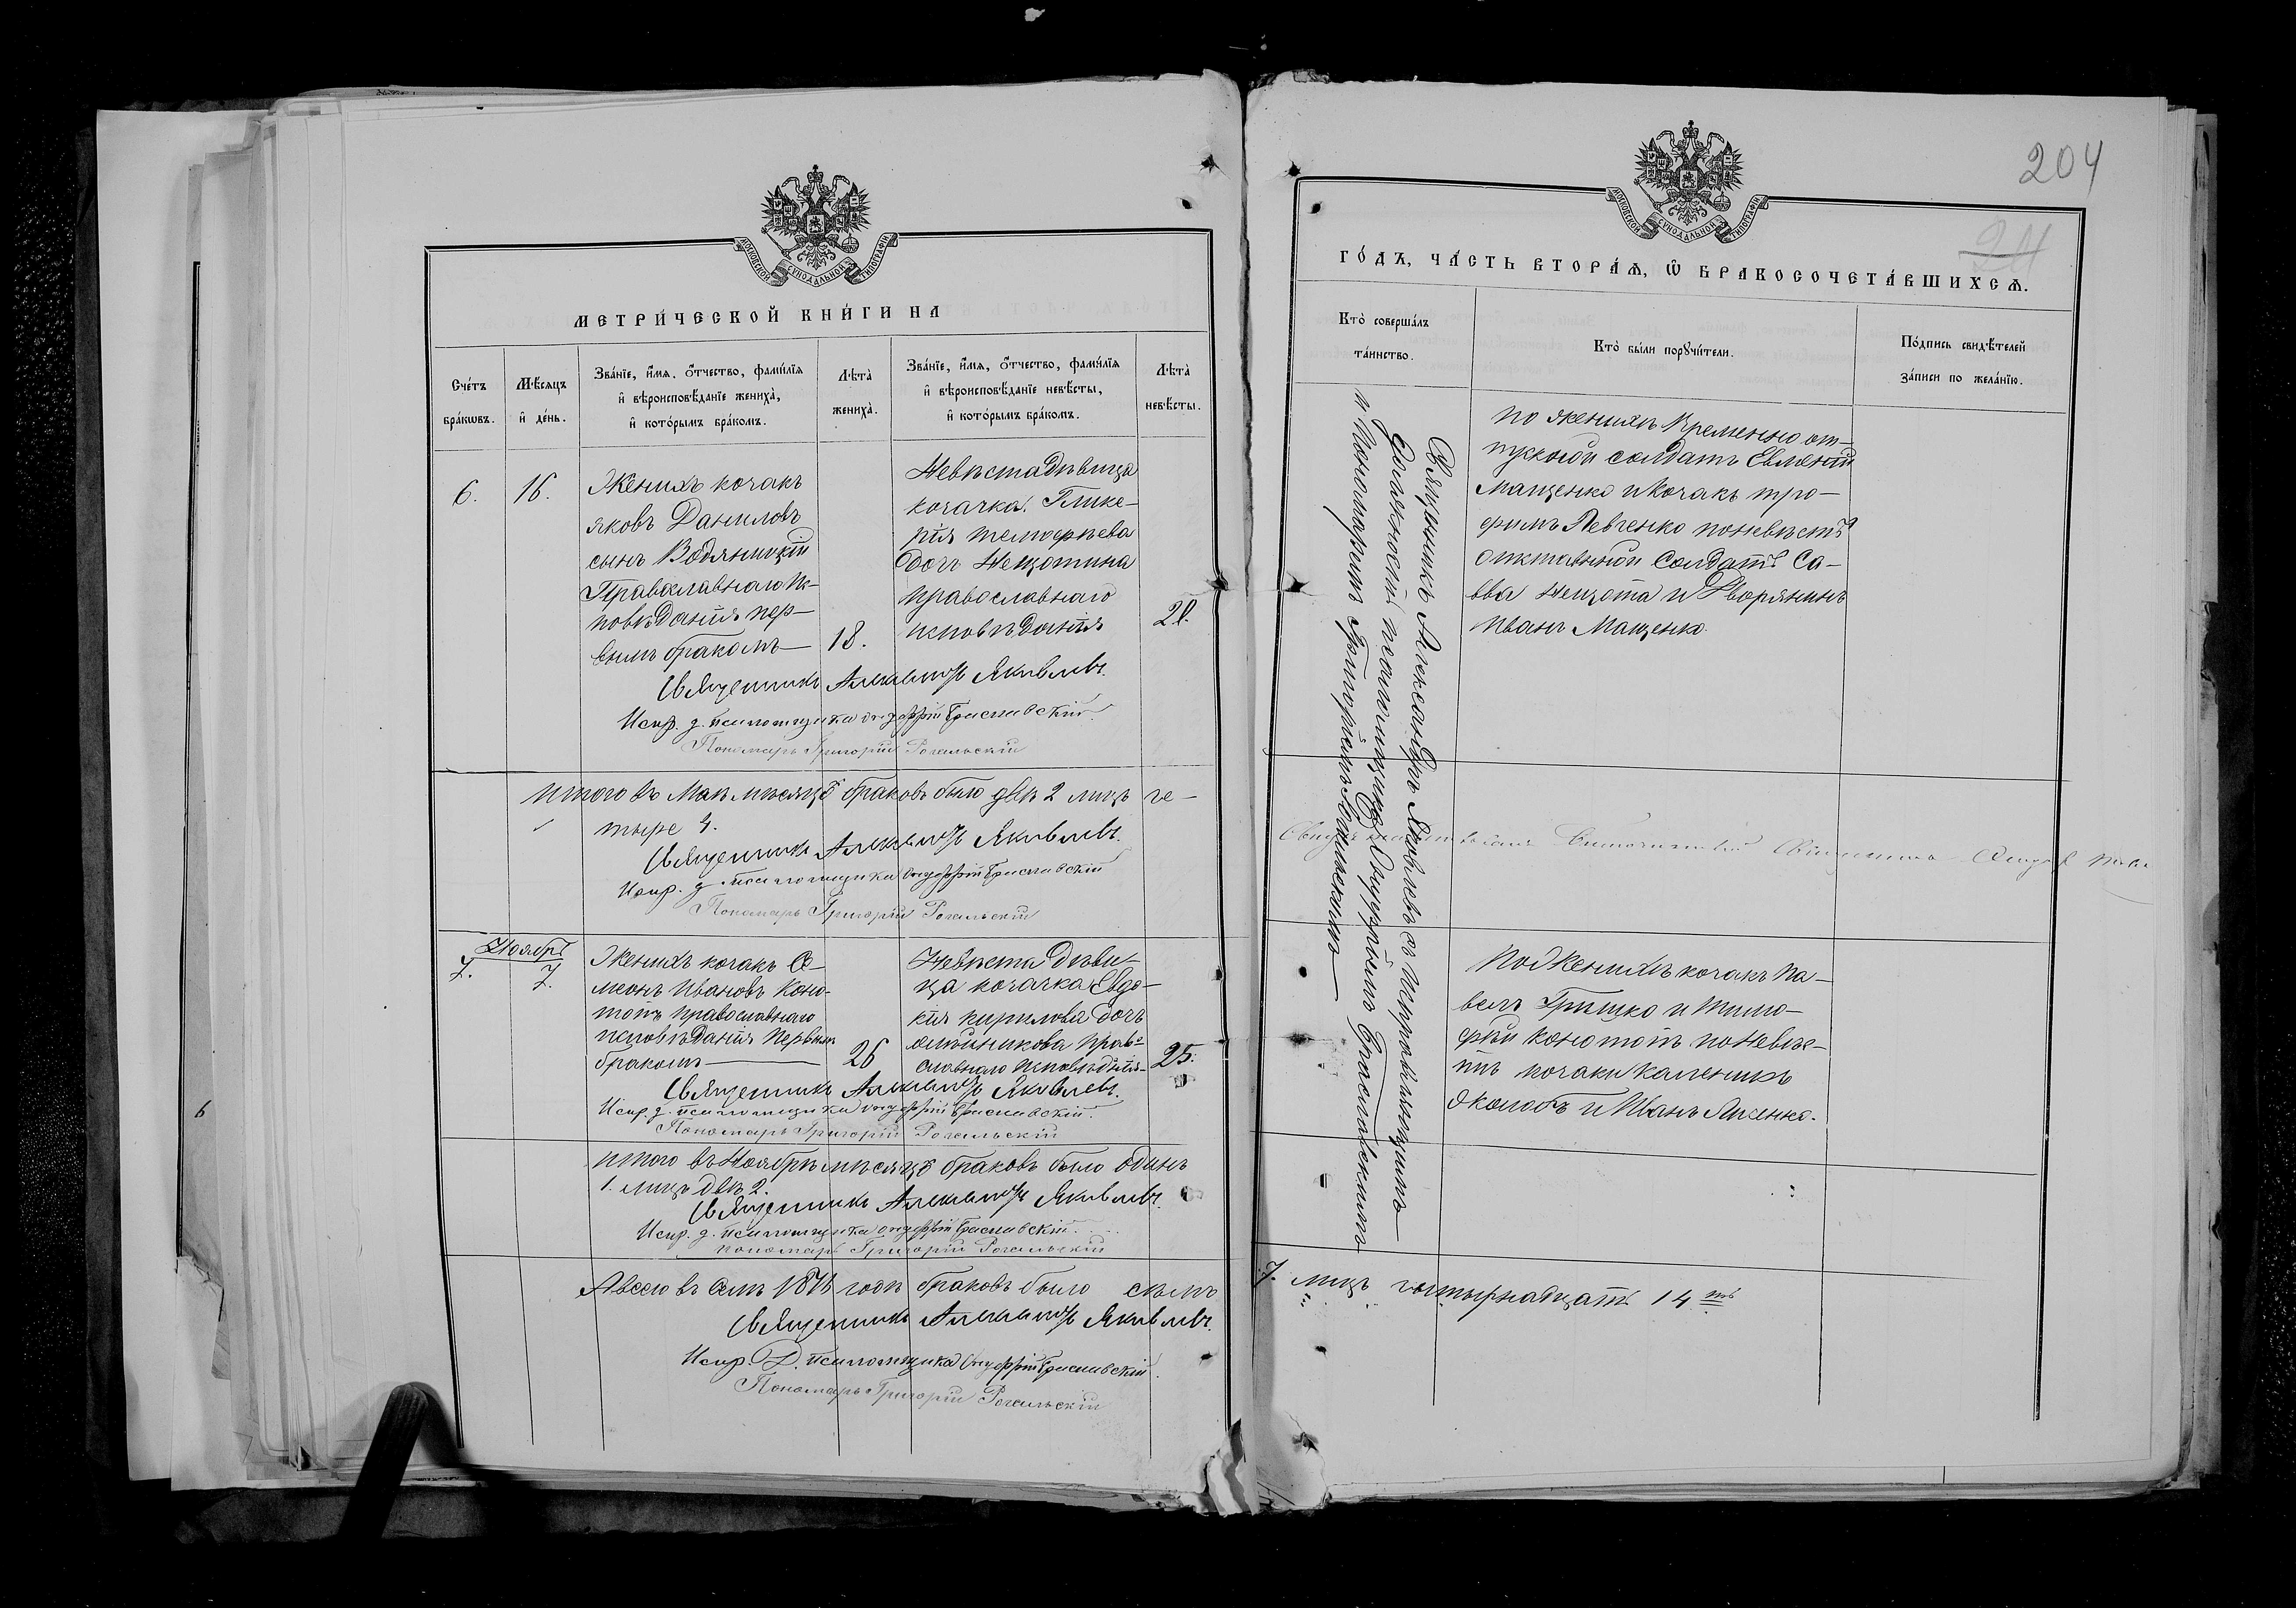 204
24
МОСКОВСКОЙ СѴНОДАЛЬНОЙ ТИПОГРАФІИ
МЕТРИ́ЧЕСКОЙ КНИ́ГИ НА
Сче́тъ бра́кѡвъ.
Мѣ́сяцъ и҆ де́нь.
Зва́нїе, и҆́мя, ѻ҆́тчество, фами́лїя
и҆ вѣроисповѣ́данїе жениха̀,
и҆ кото́рымъ бра́комъ.
Лѣта̀ жениха̀.
Зва́нїе, и҆́мя, ѻ҆́тчество, фами́лїя
и҆ вѣроисповѣ́данїе невѣ́сты,
и҆ кото́рымъ бра́комъ.
Лѣта̀ невѣ́сты.
6.
16.
Женихъ козакъ
яковъ Даниловъ
сынъ Водяницкій
Православнаго Ис-
повѣданія пер-
вымъ бракомъ
18.
Невѣста дѣвица
козачка Глике-
рія тимофѣева
дочь Нещотина
православнаго
исповѣданія
21.
Священникъ Александръ Яковлевъ.
Испр. д. псаломщика Онуфрій Браславскій.
Пономарь Григорій Рогальскій
итого въ Маѣ мѣсяцѣ браковъ было двѣ 2 лицъ че-
тыре 4.
Священникъ Александръ Яковлевъ.
Испр. д. псаломщика Онуфрій Браславскій
Пономарь Григорій Рогальскій
Ноябрь
7.
7.
Женихъ козакъ Си-
меонъ Ивановъ Коно-
топъ православнаго
исповѣданія первымъ
бракомъ
26
Невѣста дѣви-
ца козачка Евдо-
кія кирилова дочь
православнаго исповѣданія
25.
Священникъ Александръ Яковлевъ.
Испр. д. псаломщика Онуфрій Браславскій.
Пономарь Григорій Рогальскій
итого въ Ноябрѣ мѣсяцѣ браковъ было одинъ
1. лицъ двѣ 2.
Священникъ Александръ Яковлевъ.
Испр. д. псаломщика Онуфрій Браславскій.
пономарь Григорій Рогальскій
Авсего въ семъ 1876 годѣ браковъ было семъ
Священникъ Александръ Яковлевъ.
Испр. Д. псаломщика Онуфрій Браславскій.
Пономарь Григорій Рогальскій
6
МОСКОВСКОЙ СѴНОДАЛЬНОЙ ТИПОГРАФІИ
ГО́ДЪ, ЧА́СТЬ ВТОРА́Ѧ, Ѡ҆ БРАКОСОЧЕТА́ВШИХСѦ.
Кто̀ соверша́лъ
та́инство.
Кто̀ бы́ли порꙋчи́тели.
По́дпись свидѣ́телей
за́писи по жела́нїю.
Священникъ Александръ Яковлевъ съ исправляющимъ
должность псаломщика Онуфріемъ Браславскимъ
и Пономаремъ Григоріемъ Рогальскимъ
по женихѣ временно от-
пускной солдатъ
Мащенко и козакъ тро-
фимъ Левченко поневѣстѣ
отставной солдатъ Са-
вва Нещота и Дворянинъ
Иванъ Мащенко.
Поженихѣ козакъ Па-
велъ Гришко и Тимо-
фѣй конотопъ поневѣс-
тѣ козаки каленикъ
и Иванъ
7. лицъ четырнадцать 14 ть